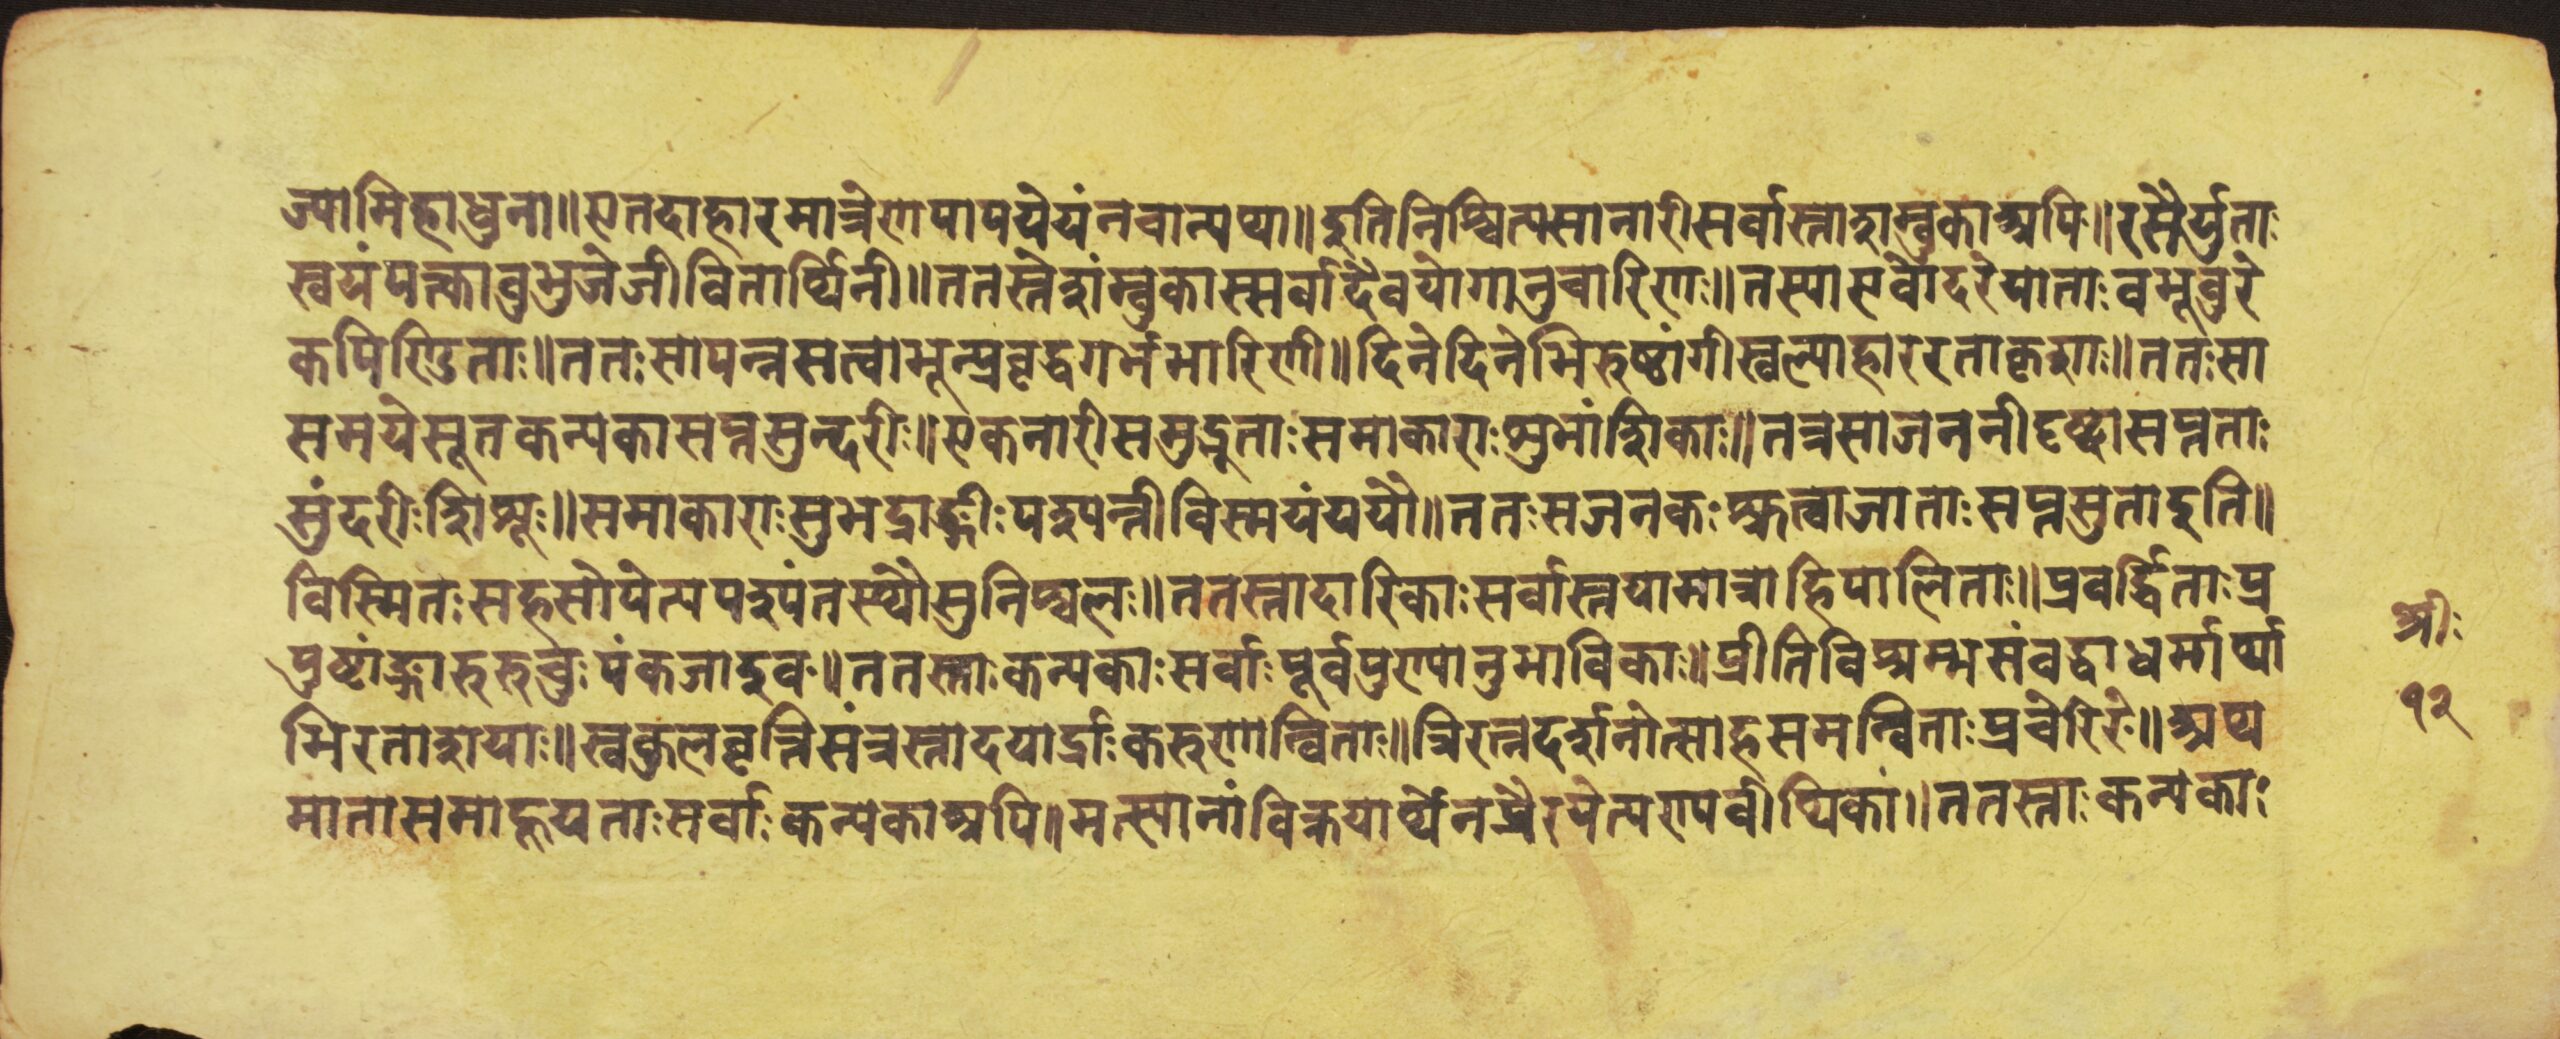 ज्यामिहाधुना॥एतदाहारमात्रेणपापयेयंनचान्यथा॥इतिनिश्चित्यसानारीसर्वास्ताशम्बुकाअपि॥रसैर्युताः
स्वयंपक्त्वाबुभुजेजीवितार्थिनी॥ततस्तेशंम्बुकास्सर्वादैवयोगानुचारिणः॥तस्याएवोदरेयाताःवभूवुरे
कपिण्डिताः॥ततःसापन्नसत्वाभून्प्रवृद्धगर्भभारिणी॥दिनेदिनेभिरुष्ठांगीस्वल्पाहाररताकृशाः॥ततःसा
समयेसूतकन्यकासप्तसुन्दरीः॥एकनारीसमुद्भूताःसमाकाराःशुभांशिकाः॥तत्रसाजननीदृष्ट्वासप्तताः
सुंदरीःशिशूः॥समाकाराःसुभद्राङ्गीःपश्यन्तीविस्मयंययौ॥ततःसजनकःश्रुत्वाजाताःसप्तसुताइति॥
विस्मितःसहसोपेत्यपश्यंतस्थौसुनिश्चलः॥ततस्तादारिकाःसर्वास्तयामात्राहिपालिताः॥प्रवर्द्धिताःप्र
पुष्टांङ्गारुरुचुःपंकजाइव॥ततस्ताःकन्यकाःसर्वाःपूर्वपुण्यानुभाविकाः॥प्रीतिविश्रम्भसंवद्धाधर्मार्था
भिरताशयाः॥स्वकुलवृत्तिसंत्रस्तादयार्द्राःकरुणान्विताः॥त्रिरत्नदर्शनोत्साहसमन्विताःप्रचेरिरे॥अथ
मातासमाहूयताःसर्वाःकन्यकाअपि॥मत्स्यानांविक्रयार्थेनप्रैरयेत्पण्यवीथिकां॥ततस्ताःकन्यकाः
श्रीः
१२